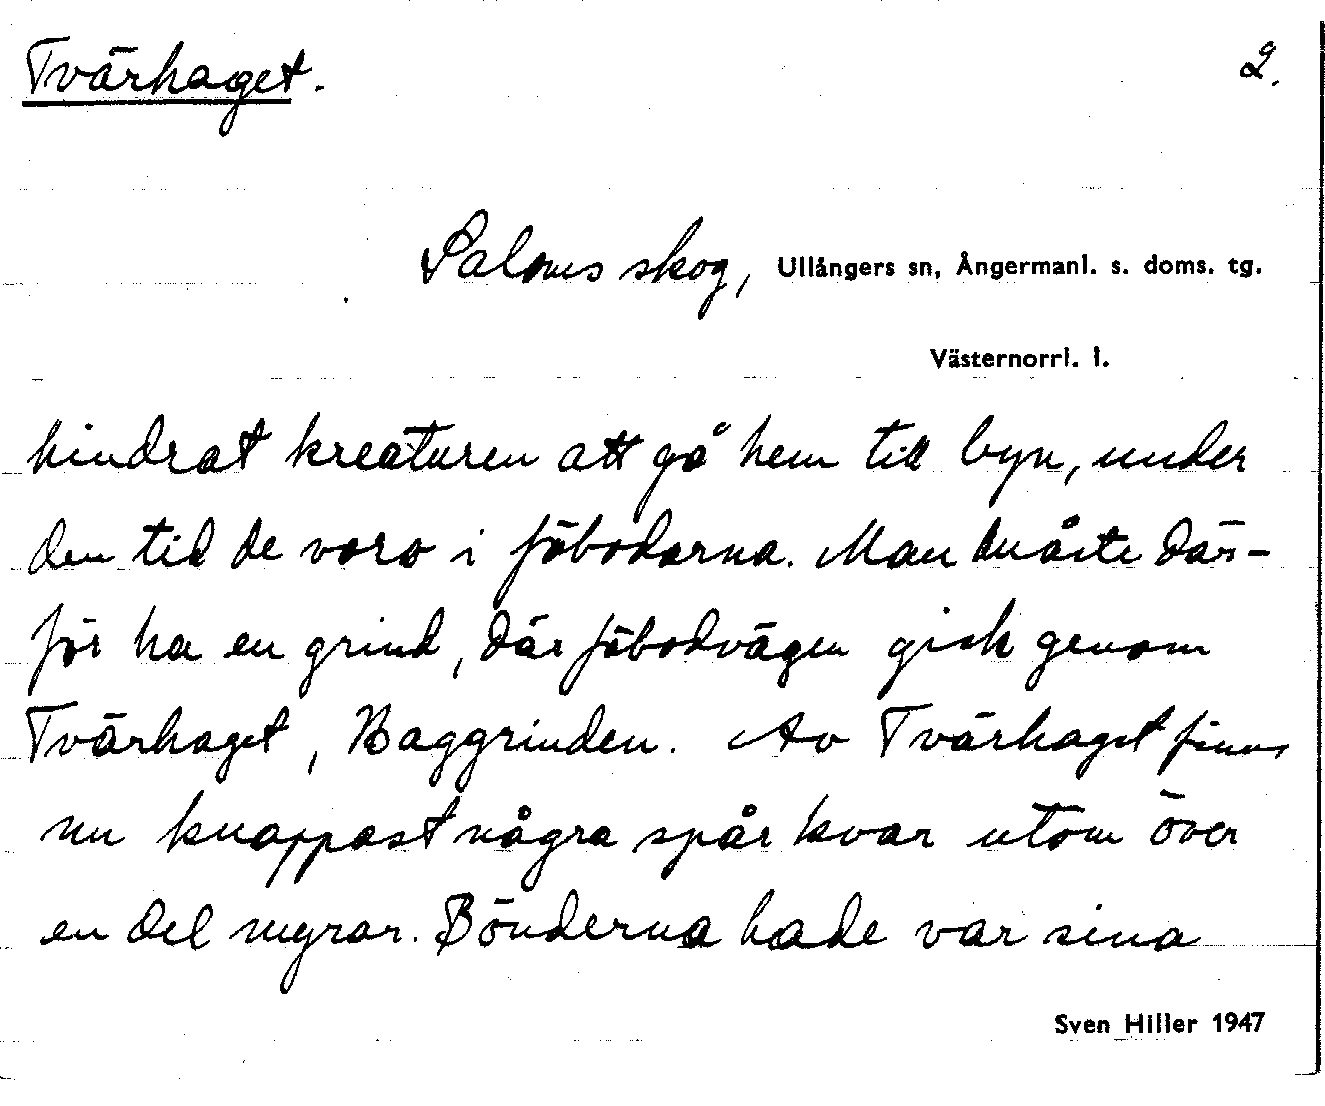 Tvärhaget. 2.
Saloms skog, Ullångers sn, Ångermanl. s. doms. tg.
Västernorrl. l.
hindrat kreaturen att gå hem till byn, under
den tid de voro i fäbodarna. Man måste där-
för ha en grind, där fäbodvägen gick genom
Tvärhaget, Baggrinden. Av Tvärhaget finns
nu knappast några spår kvar utom över
en del myrar. Bönderna hade var sina
Sven Hiller 1947